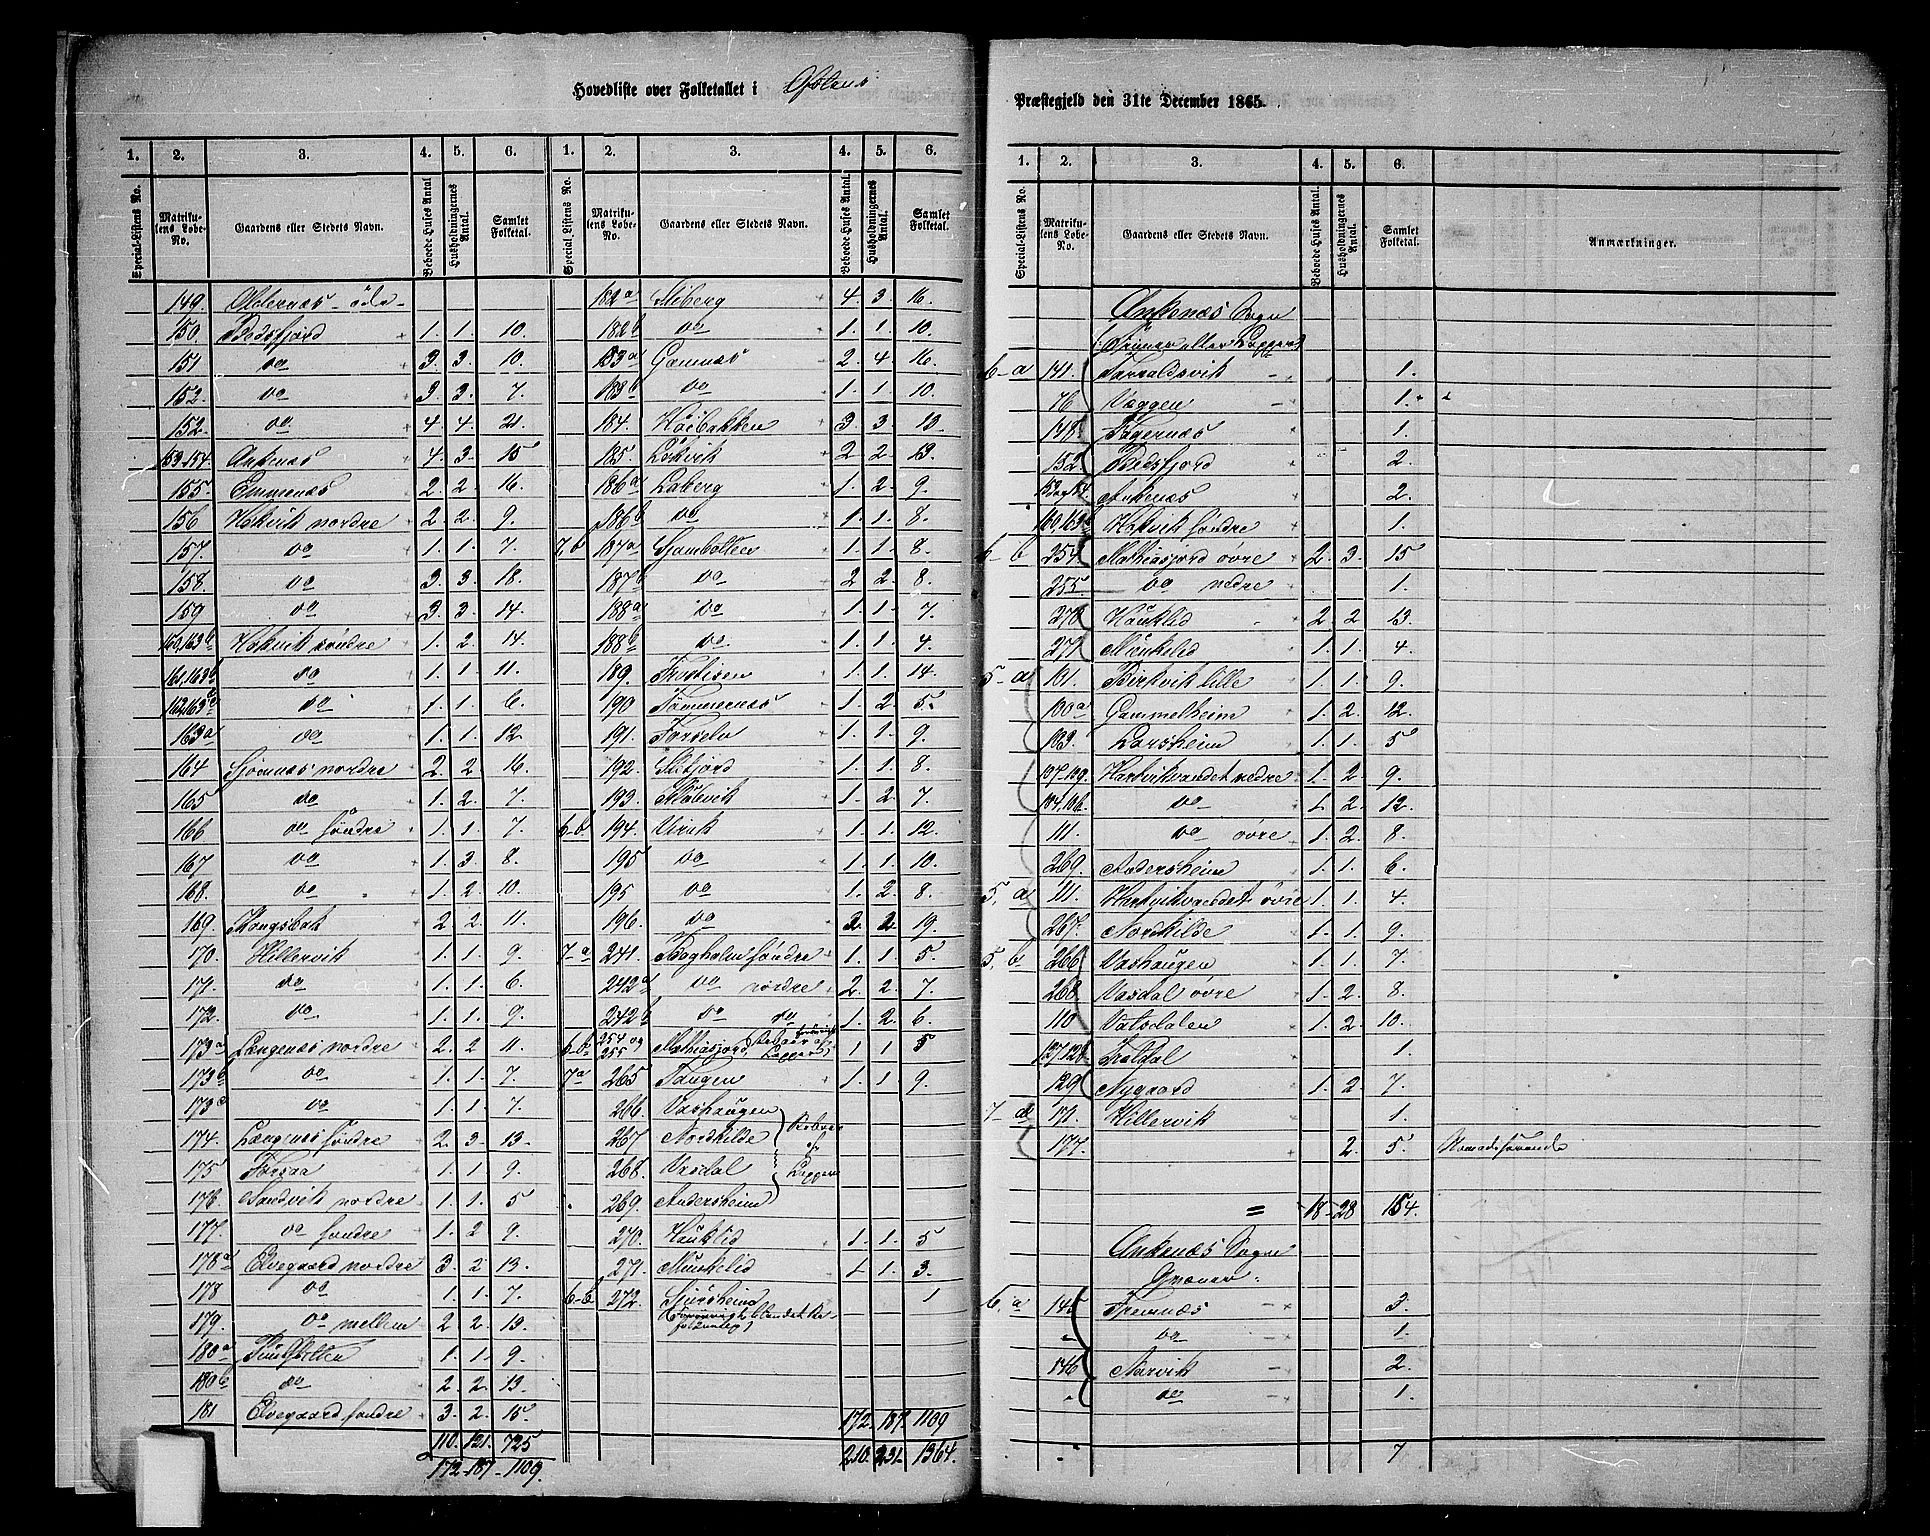 Hovedliste over Folketallet i Ofotens
1. 2. 3. 4. 5. 6. 1. 2. 3. 4. 5. 6.
Special-Listens No. Matrikulens Løbe-No. Gaardens eller Stedets Navn. Beboede Huses Antal Husholdningernes Antal. Samlet Folketal. Special-Listens No. Matrikulens Løbe-No. Gaardens eller Stedets Navn. Beboede Huses Antal. Husholdningernes Antal. Samlet Folketal.
149. Oldernæs - öde -
150. Bedsfjord 1. 1. 10.
151 do 3. 3. 10.
152. do 3. 3. 7.
152. do 4. 4. 21.
153.154. Ankenæs 4. 3. 15
155. Emmenæs 2. 2. 16.
156 Hokvik nordre 2. 2. 9.
157. do 1. 1. 7.
158. do 3. 3. 18.
159 do 3. 3. 14.
160,163b Hokvik söndre 1. 2. 14.
161,163b do 1. 1. 11.
162,163 do 1. 1. 6.
163a do 1. 1. 12
164 Sjömnæs nordre 2. 2. 16.
165 do 1. 2. 7.
166 do söndre 1. 1. 7.
167 do 1. 3. 8.
168. do 1. 2. 10.
169. Kongsbak 2. 2. 11.
170. Hillervik 1. 1. 9.
171. do 1. 1. 6.
172. do 1. 1. 9.
173a Længenæs nordre 2. 2 11.
173b do 1. 1. 7.
173c do 1. 1. 7.
174. Længenæs söndre 2. 3. 13.
175 Forsaa 1. 1. 9.
176 Sandvik nordre 1. 1. 5
177. do söndre 1. 2 9.
178a Elvegaard nordre 3. 2 13.
178 do 1. 1. 7.
179. do mellem 2 2. 13.
180a 1. 1. 9.
180b do 2. 2. 13.
181 Elvegaard söndre 3. 2. 15.
110. 121. 725
172 - 187 - 1109.
182a Skiberg 4. 3. 16.
182b do 1. 1. 10.
183a Gamnæs 2. 4 16.
183b do 1. 1. 10.
184. Höibakken 3. 3. 10.
185. Lökvik 2 2. 13.
186a Laberg 1. 2. 9.
186b do 1. 1. 8.
7,b 187a Sjombotten 1. 1. 8.
187b do 2 2. 8.
188a do 1. 1. 7.
188b do 1. 1. 4.
189. Frostisen 1. 1. 14.
190 Tömmernæs 1. 2 5.
191. Forselv 1. 1. 9.
192. Skfjord 1. 1. 8.
193. 1. 2. 7.
6-b 194. Virak 1. 1. 12.
195 do 1. 1. 10.
195 do 1. 2. 8.
196. do 2. 2 19.
7-a 241. Skogholm söndre 1. 1. 5
242a do nordre 2. 2. 7.
242b do do 1. 2. 6.
6-b 254 og 255 Mathiasjord 1 1 5
7a 265 Tangen 1. 1 9.
266. Vashaugen
267. Nordkilde Beboes
268. Vasdal af Lapper
269. Andersheim
270. Hauklid 1. 1. 5
271. Munkelid 1 1. 3.
6-b 272. Sjursheim 1
172. 187. 1109
210. 231. 1364.
Præstegjeld den 31te December 1865.
1. 2. 3. 4. 5. 6.
Special-Listens No. Matrikulens Løbe-No. Gaardens eller Stedets Navn. Beboede Huses Antal. Husholdningernes Antal. Samlet Folketal. Anmærkninger.
Ankenæs Sogn
(Finner eller Lapper)
6-a 141. Tarraldsvik - 1.
76 Væggen - 1.
148 Fagernæs 1.
152. Bedsfjord 2.
153 og 154 Ankenæs 2.
160,163b Hokvik söndre 1.
6-b 254 Mathiasjord övre 2. 3. 15
255 do nedre 1.
270 Hauklid 2. 2 13.
271 Munkelid 1. 1. 4
5-a 101. Birkvik lille 1. 1. 9.
100a Gammelheim 1. 2. 12.
103. Larsheim 1. 1. 5
107.109. Hartvikvandet nedre 1. 2. 9.
104,106 do 1. 2. 12.
111. do övre 1. 2. 8.
269. Andersheim 1. 1. 6.
5. a 111. Hartvikvandet övre 1. 1. 4.
267. Nordkilde 1. 1. 9.
5. b 266 Vashaugen 1. 1. 7.
268 Vasdal övre 1. 2. 8.
110 Vatsdalen 1. 2 10.
127,128 1.
129 Nygaard 1. 2. 7.
7-a 171. Hillervik 1.
177. 2. 5. Nomadisérende
= 18 - 28 154.
Ankenæs Sogn
Qvæner.
6. a 145 Fremnæs - 3.
" do 1.
146 Narvik - 2.
" do - 1.
7